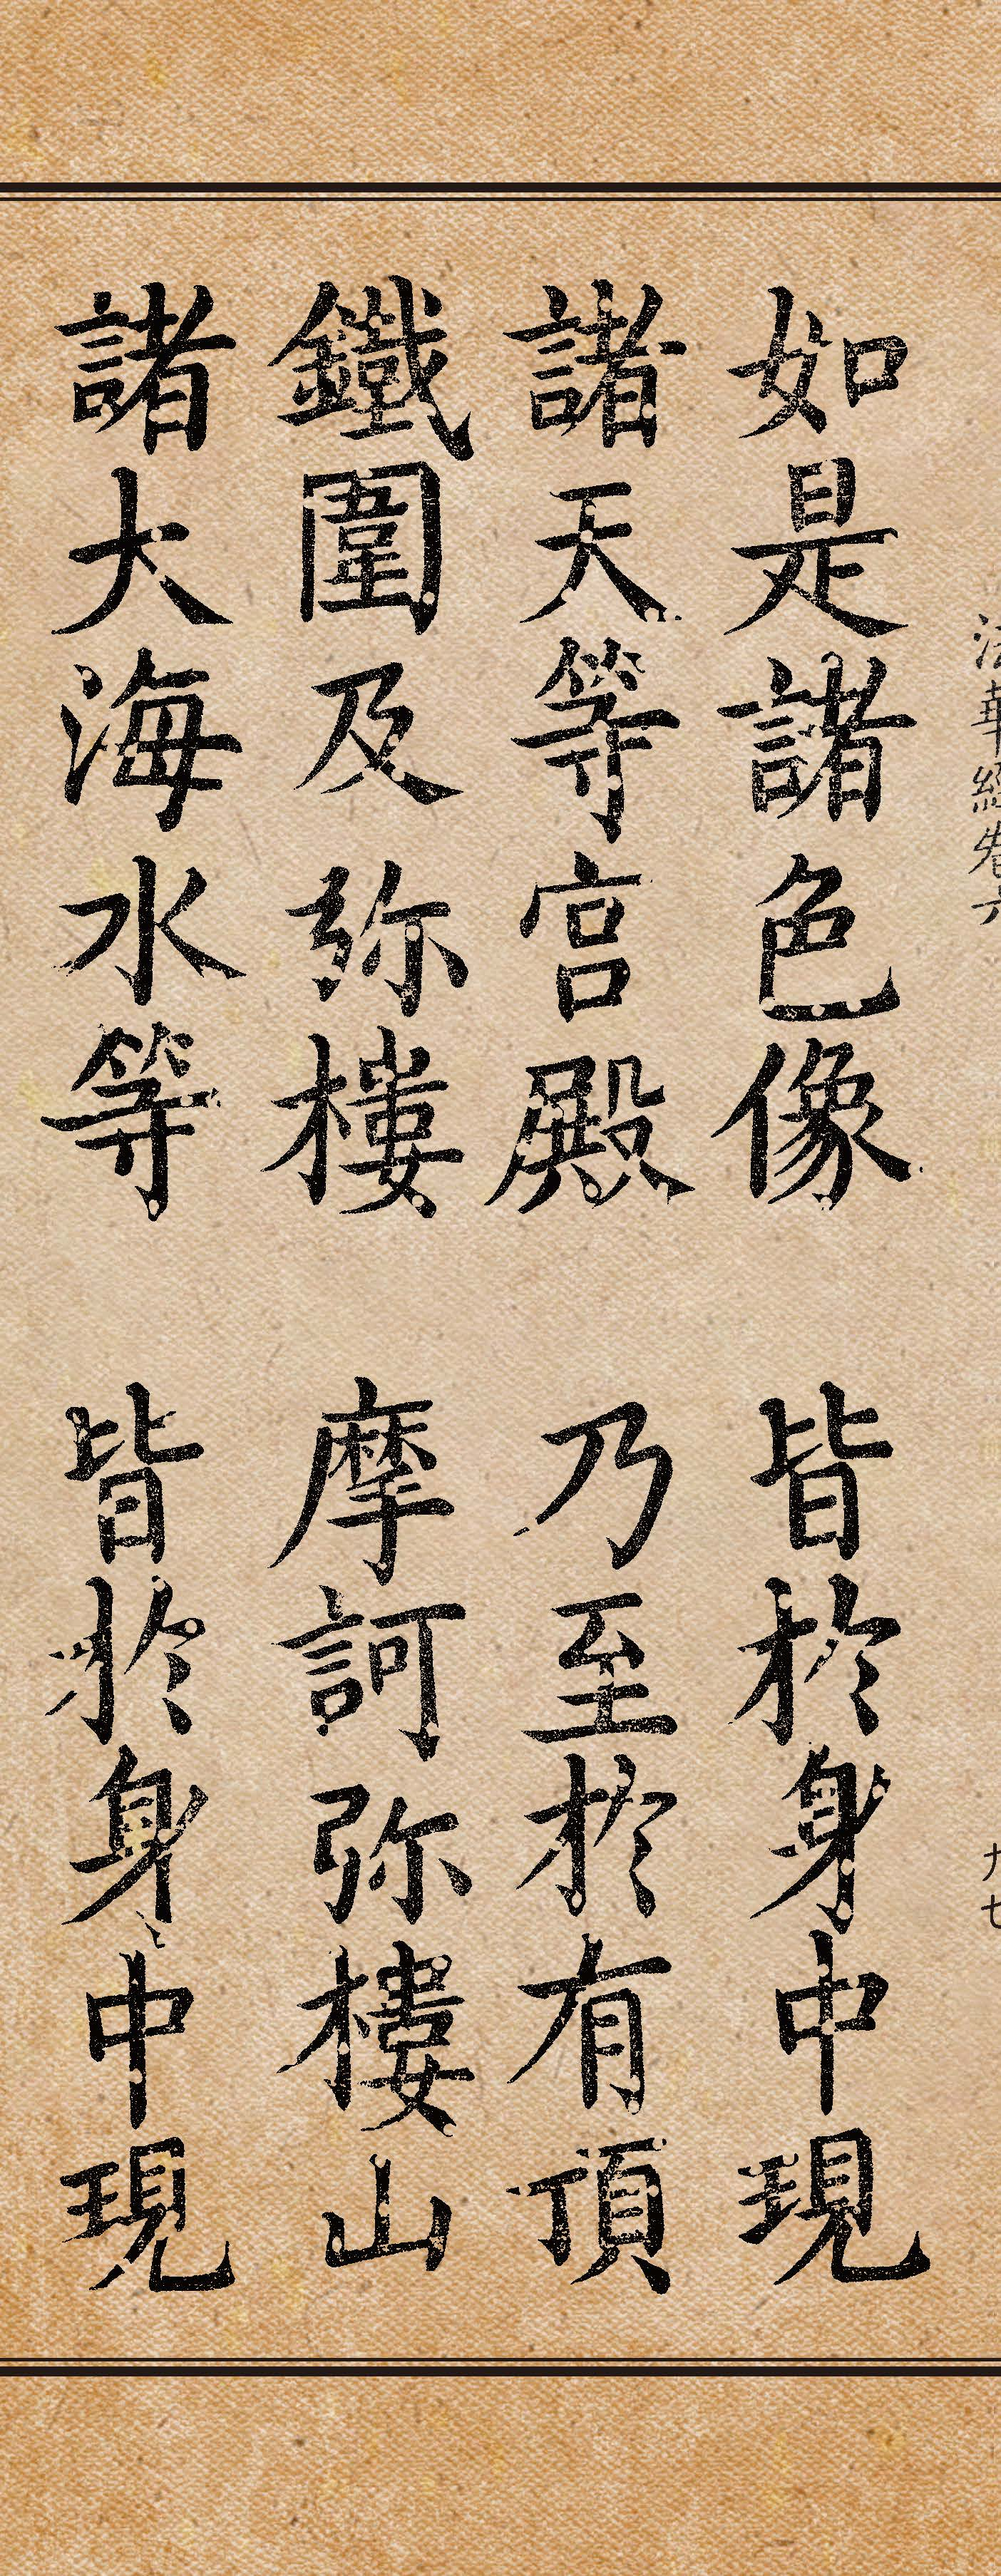 法華經卷六
九七
如是諸色像 皆於身中現
諸天等宮殿 乃至於有頂
鐵圍及弥樓 摩訶弥樓山
諸大海水等 皆於身中現